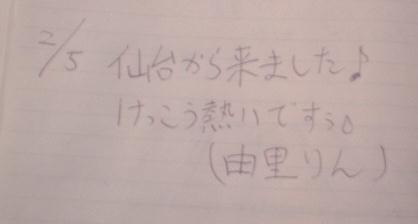 2/5 仙台から来ました♪
けっこう熱いですぅ。
(由里りん)